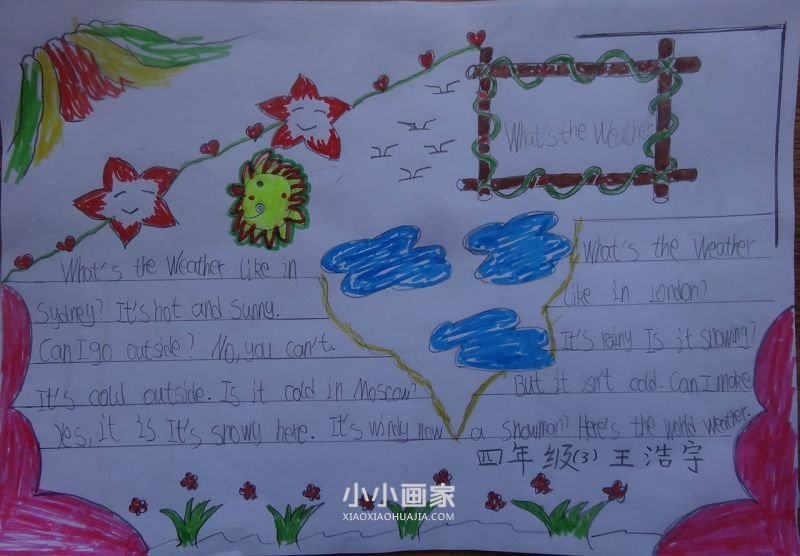 What's the Weather
What's the Weather like in
Sydney? It's hot and sunny.
Can I go outside? No, you can't.
It's cold outside. Is it cold in Moscow?
Yes, it is It's snowy here. It's windy now
What's the Weather
like in London?
It's rainy Is it snowing?
But it isn't cold. Can I make
a snowman? Here's the world weather.
四年级(3) 王浩宇
小小画家
XIAOXIAOHUAJIA.COM